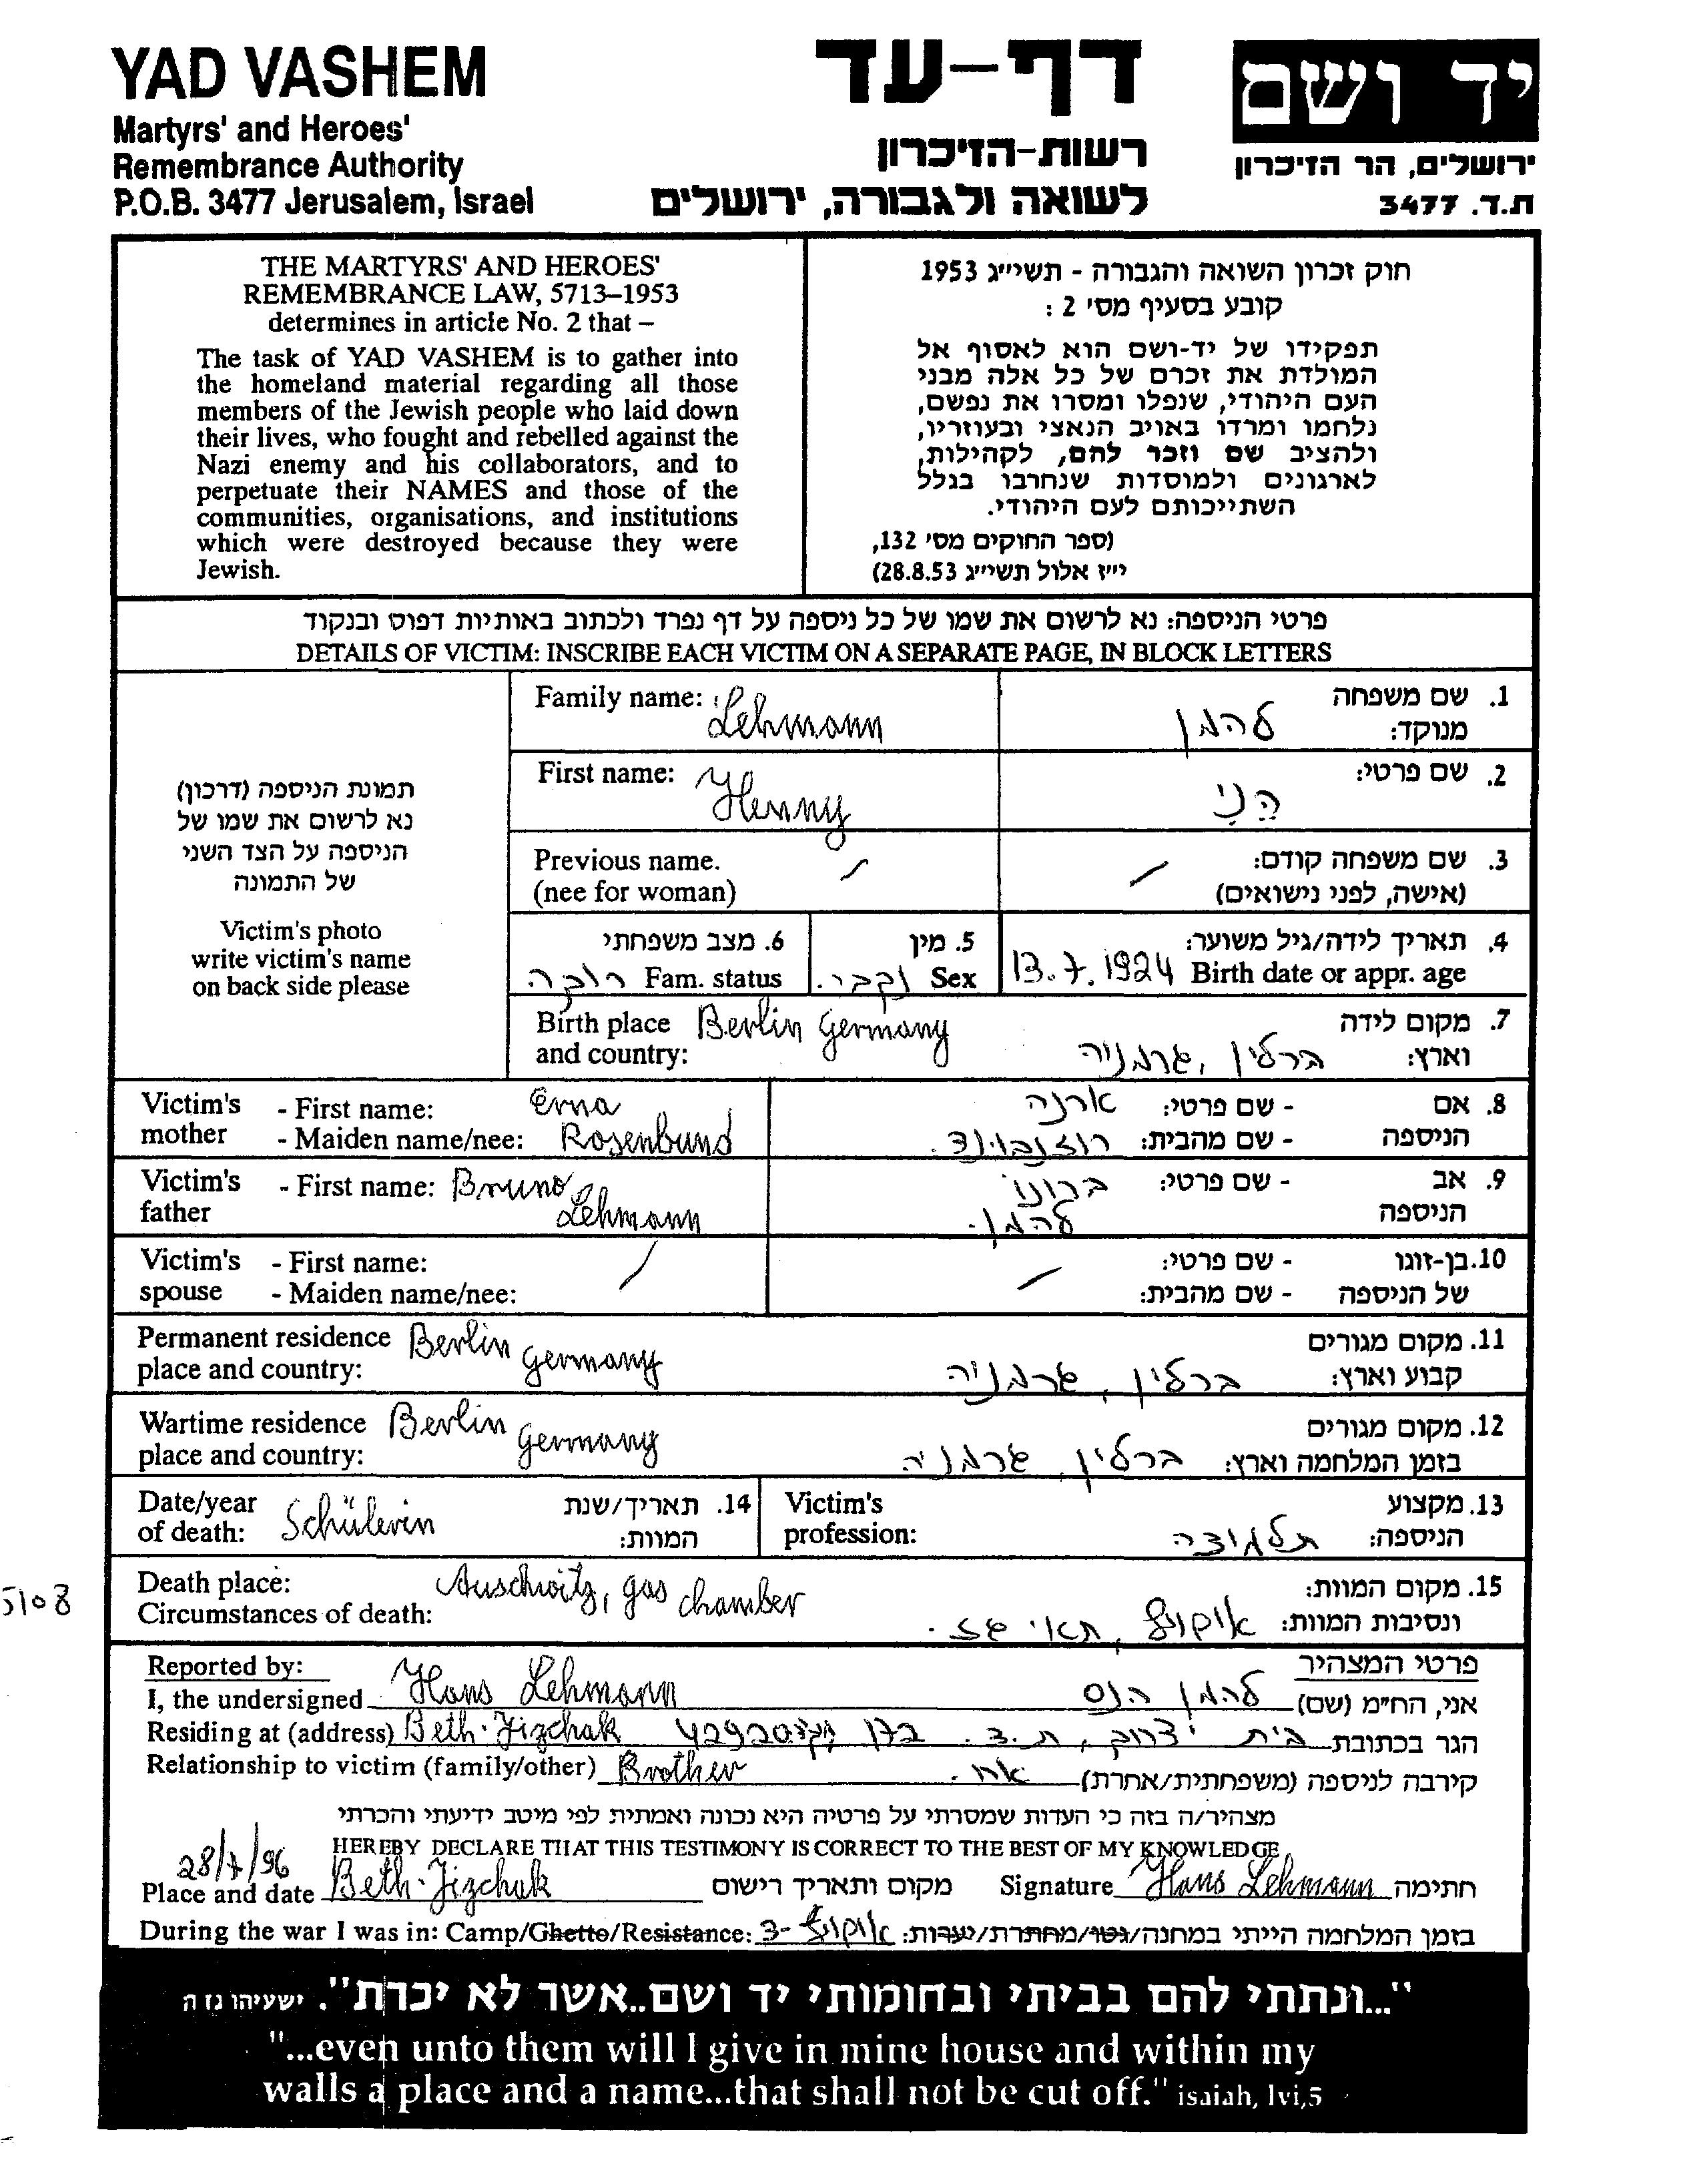 YAD VASHEM
Martyrs' and Heroes'
Remembrance Authority
P.O.B. 3477 Jerusalem, Israel
דף-עד
רשות-הזיכרון
לשואה ולגבורה, ירושלים
יד ושם
ירושלים, הר הזיכרון
ת.ד. 3477
THE MARTYRS' AND HEROES'
REMEMBRANCE LAW, 5713–1953
determines in article No. 2 that –
The task of YAD VASHEM is to gather into
the homeland material regarding all those
members of the Jewish people who laid down
their lives, who fought and rebelled against the
Nazi enemy and his collaborators, and to
perpetuate their NAMES and those of the
communities, organisations, and institutions
which were destroyed because they were
Jewish.
חוק זכרון השואה והגבורה - תשי״ג 1953
קובע בסעיף מס׳ 2 :
תפקידו של יד-ושם הוא לאסוף אל
המולדת את זכרם של כל אלה מבני
העם היהודי, שנפלו ומסרו את נפשם,
נלחמו ומרדו באויב הנאצי ובעוזריו,
ולהציב שם וזכר להם, לקהילות,
לארגונים ולמוסדות שנחרבו בגלל
השתייכותם לעם היהודי.
(ספר החוקים מס׳ 132,
י״ז אלול תשי״ג 28.8.53)
פרטי הניספה: נא לרשום את שמו של כל ניספה על דף נפרד ולכתוב באותיות דפוס ובנקוד
DETAILS OF VICTIM: INSCRIBE EACH VICTIM ON A SEPARATE PAGE, IN BLOCK LETTERS
תמונת הניספה (דרכון)
נא לרשום את שמו של
הניספה על הצד השני
של התמונה
Victim's photo
write victim's name
on back side please
Family name: Lehmann
להמן
1. שם משפחה
מנוקד:
First name: Henny
הֵנִי
2. שם פרטי:
Previous name.
(nee for woman)
3. שם משפחה קודם:
(אישה, לפני נישואים)
6. מצב משפחתי
Fam. status רוקה
5. מין
Sex
4. תאריך לידה/גיל משוער:
13.7.1924 Birth date or appr. age
Birth place Berlin Germany
and country:
7. מקום לידה
וארץ: ברלין, גרמניה
Victim's - First name: Erna
mother - Maiden name/nee: Rosenbund
8. אם - שם פרטי: ארנה
הניספה - שם מהבית: רוזנבונד.
Victim's - First name: Bruno
father Lehmann
9. אב - שם פרטי: ברונו
הניספה להמן.
Victim's - First name:
spouse - Maiden name/nee:
10. בן-זוגו - שם פרטי:
של הניספה - שם מהבית:
Permanent residence Berlin
place and country: Germany
11. מקום מגורים
קבוע וארץ: ברלין, גרמניה
Wartime residence Berlin
place and country: Germany
12. מקום מגורים
בזמן המלחמה וארץ: ברלין, גרמניה
Date/year
of death: Schülerin
14. תאריך/שנת
המוות:
Victim's
profession:
13. מקצוע
הניספה: תלמידה
Death place: Auschwitz, gas chamber
Circumstances of death:
15. מקום המוות:
ונסיבות המוות: אושוויץ, תאי גז.
5108
Reported by:
פרטי המצהיר
I, the undersigned Hans Lehmann
אני, הח״מ (שם) להמן הנס
Residing at (address) Beth-Jizchak 42920
הגר בכתובת בית יצחק, ת.ד.
Relationship to victim (family/other) Brother
קירבה לניספה (משפחתית/אחרת) אח.
מצהיר/ה בזה כי העדות שמסרתי על פרטיה היא נכונה ואמתית לפי מיטב ידיעתי והכרתי
HEREBY DECLARE THAT THIS TESTIMONY IS CORRECT TO THE BEST OF MY KNOWLEDGE
28/7/96
Place and date Beth-Jizchak מקום ותאריך רישום
Signature Hans Lehmann חתימה
During the war I was in: Camp/Ghetto/Resistance:
בזמן המלחמה הייתי במחנה/גטו/מחתרת/יערות:
"...ונתתי להם בביתי ובחומותי יד ושם..אשר לא יכרת". ישעיהו נו ה
"...even unto them will I give in mine house and within my
walls a place and a name...that shall not be cut off." isaiah, lvi,5